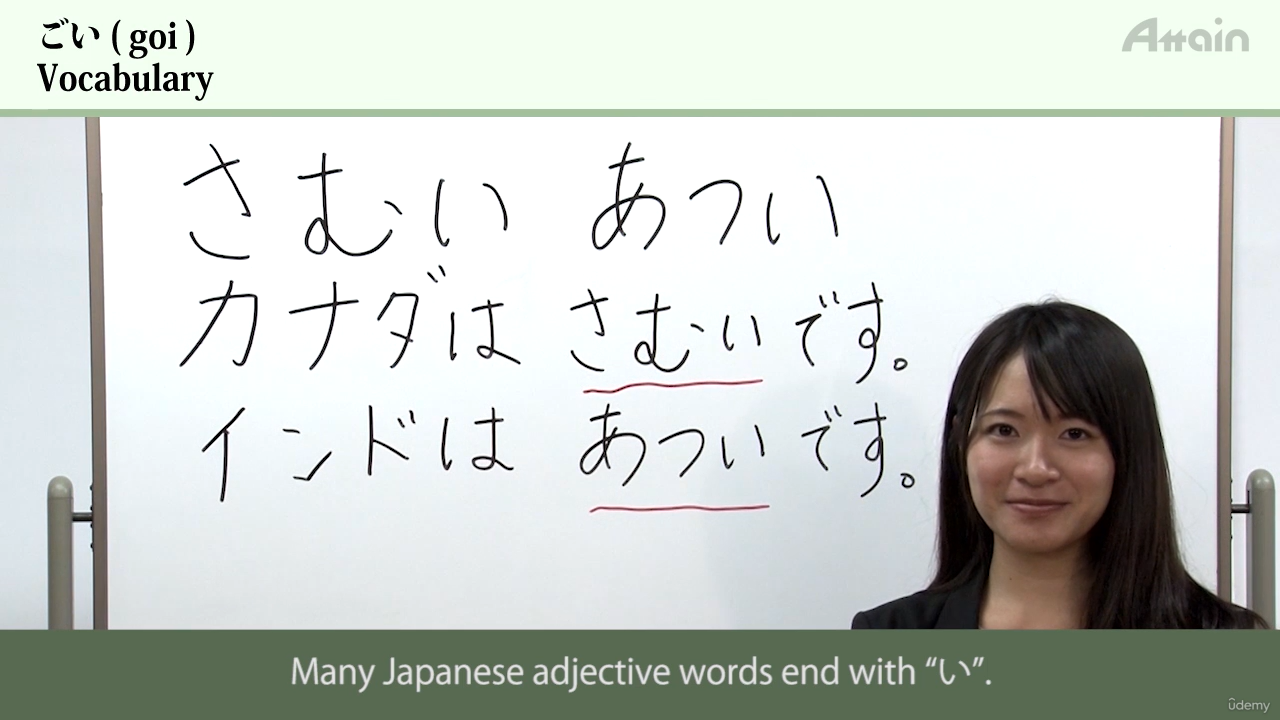 ごい ( goi )
Vocabulary
Attain
さむい あつい
カナダは さむいです。
インドは あついです。
Many Japanese adjective words end with “い”.
ûdemy